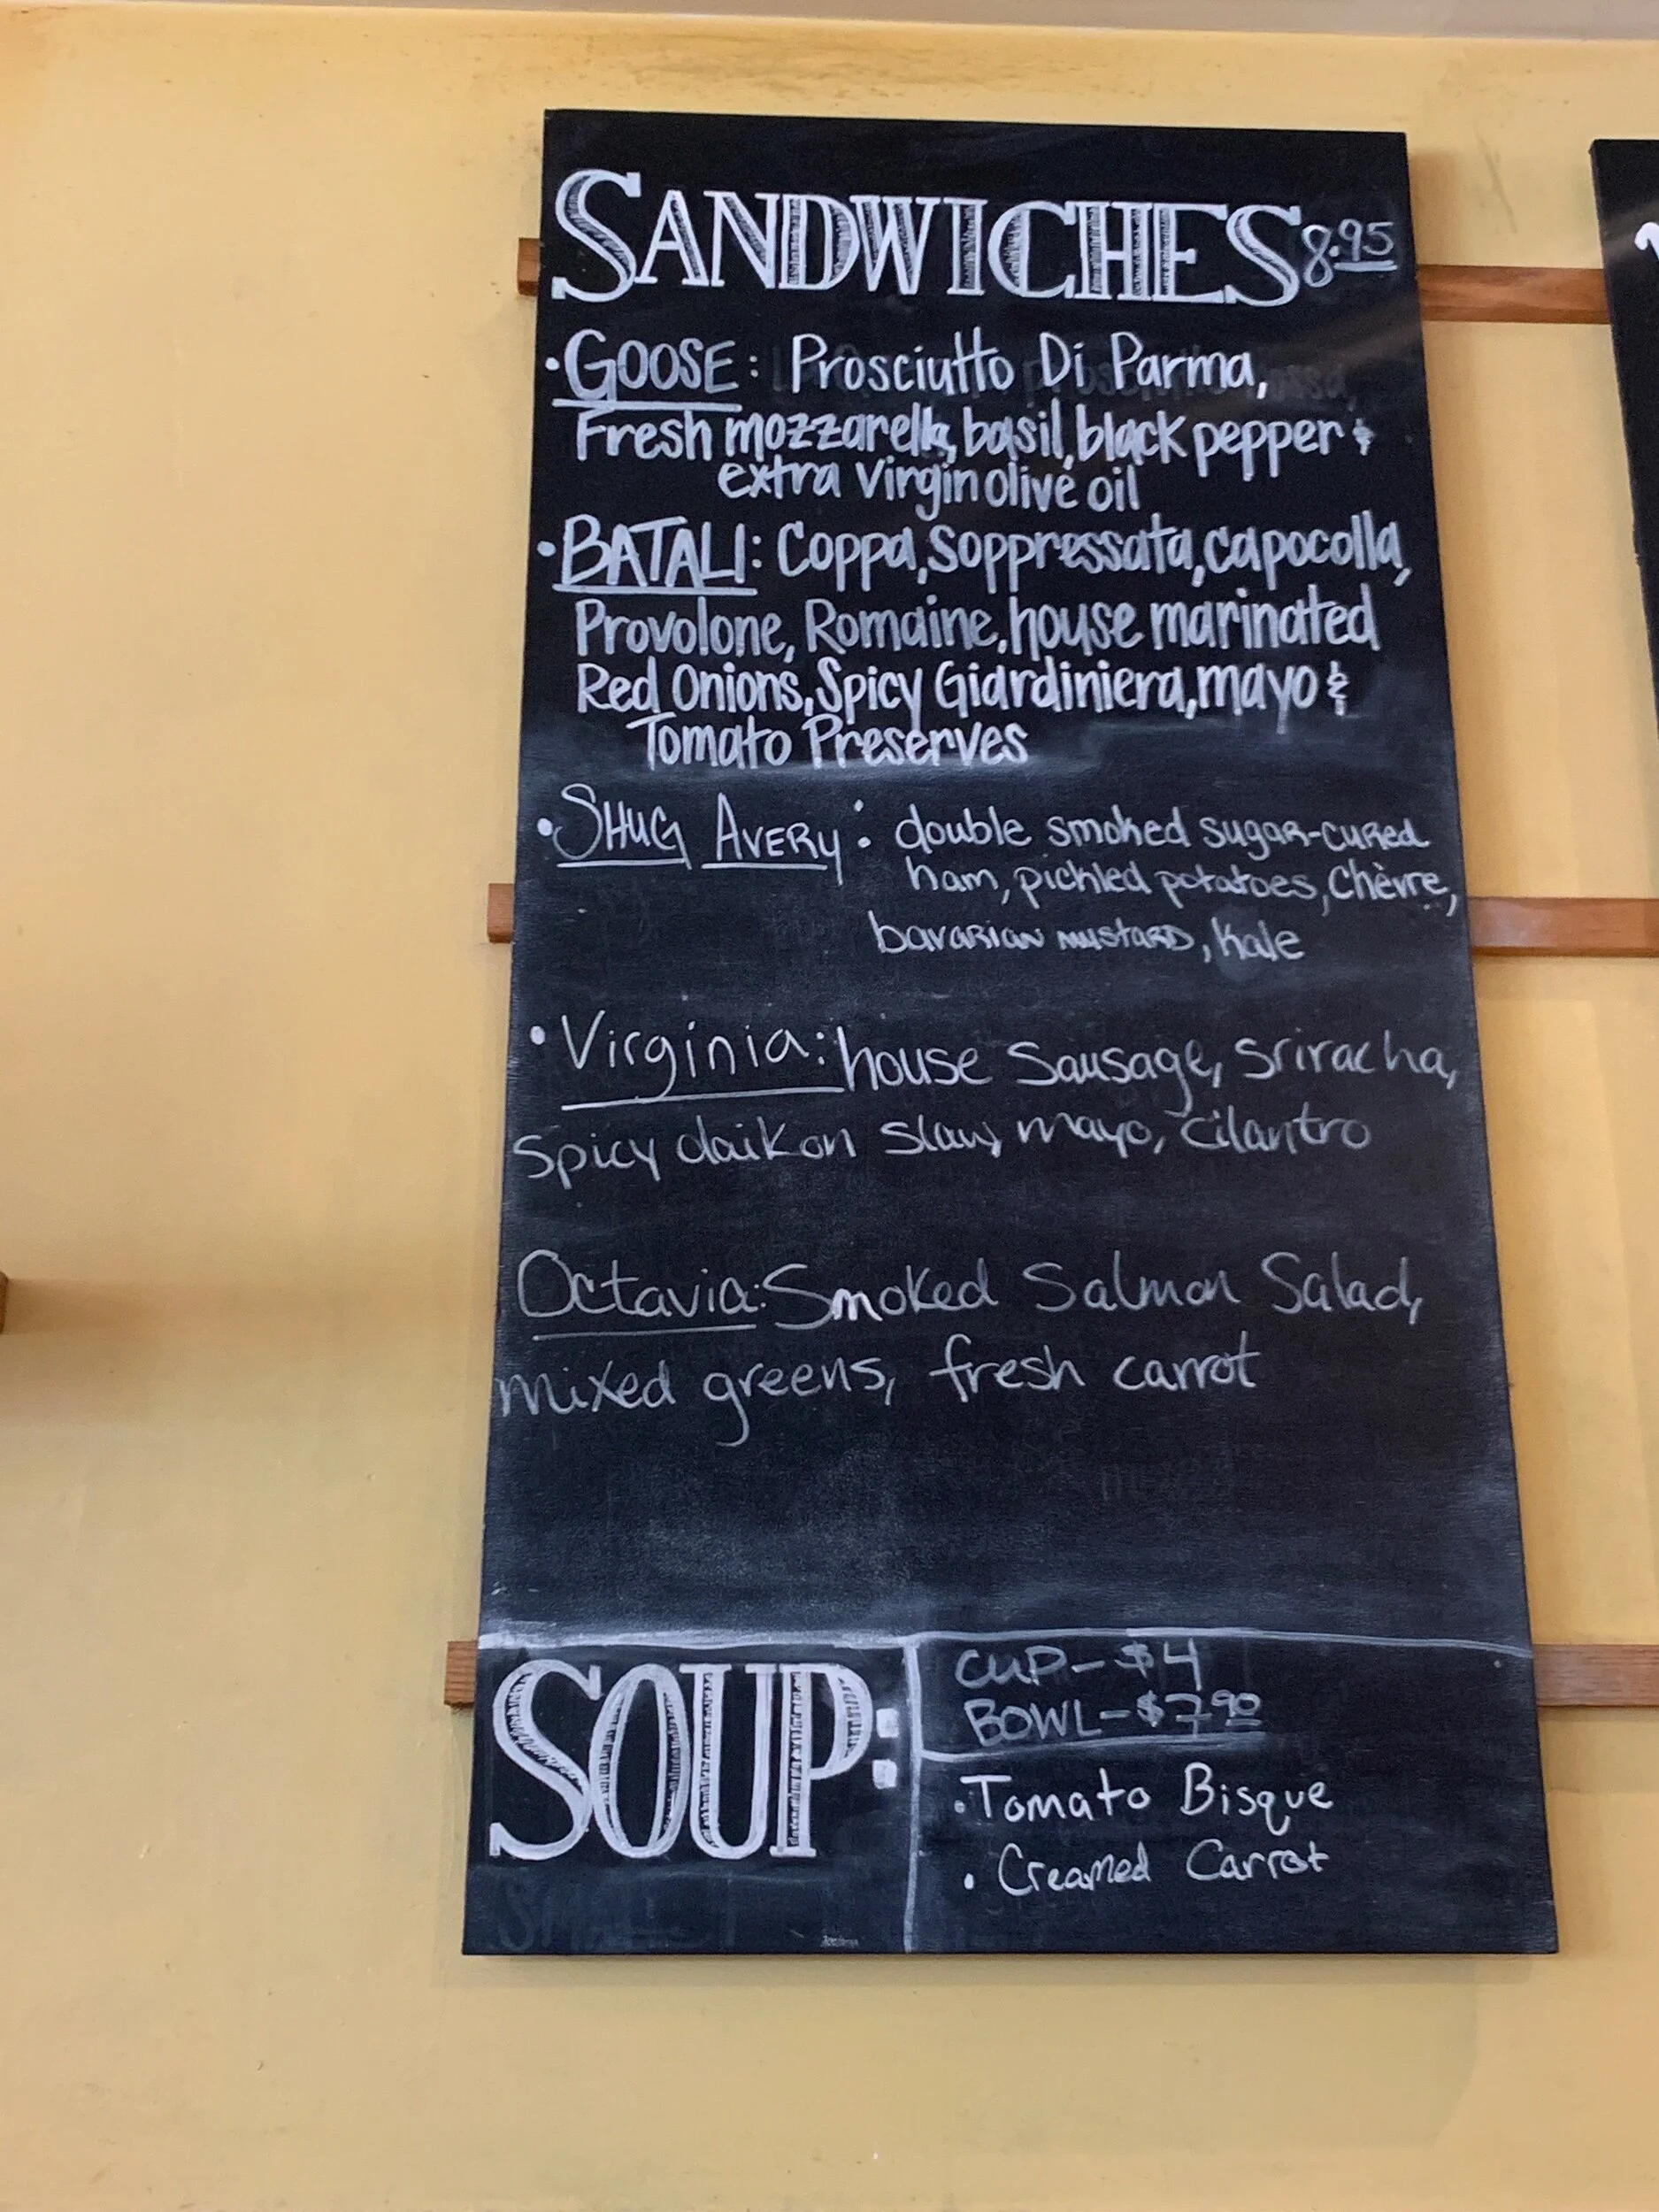 SANDWICHES 8.95
• GOOSE: Prosciutto Di Parma,
Fresh mozzarella, basil, black pepper &
extra virgin olive oil
• BATALI: Coppa, Soppressata, capocolla,
Provolone, Romaine, house marinated
Red Onions, Spicy Giardiniera, mayo &
Tomato Preserves
• SHUG AVERY: double smoked sugar-cured
ham, pickled potatoes, Chèvre,
bavarian mustard, kale
• Virginia: house Sausage, sriracha,
spicy daikon slaw, mayo, cilantro
Octavia: Smoked Salmon Salad,
mixed greens, fresh carrot
SOUP:
CUP – $4
BOWL – $7.90
• Tomato Bisque
• Creamed Carrot